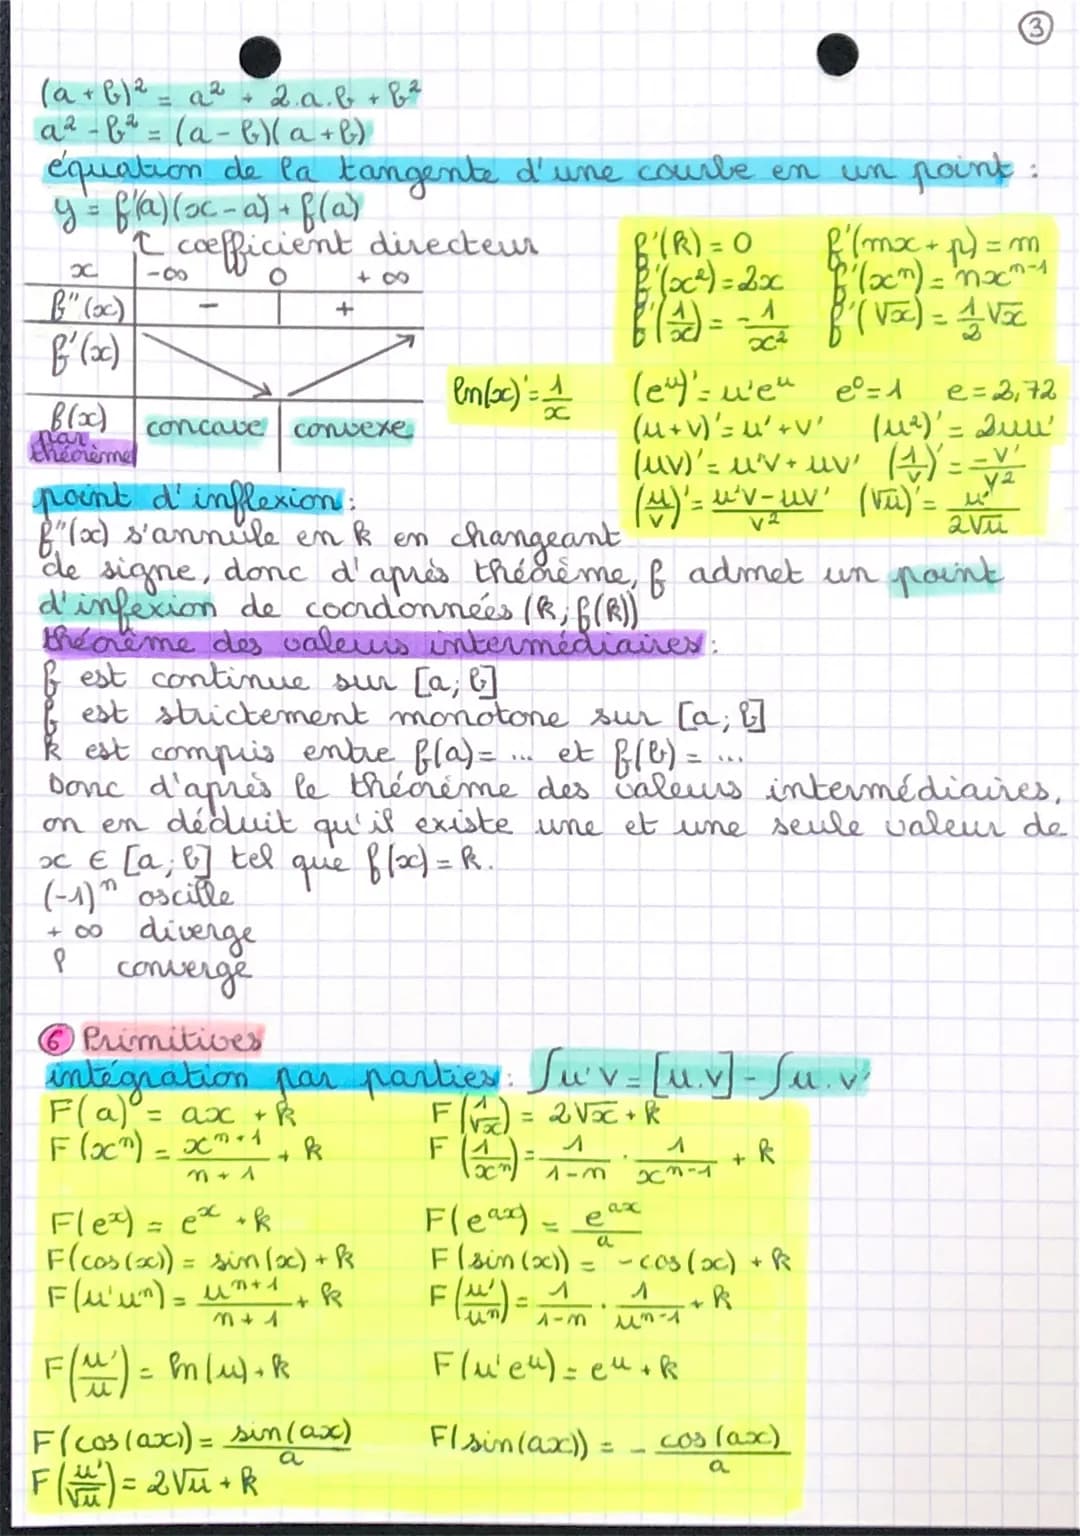 3
(a + b)² = a² + 2.a.b + b²
a² - b² = (a - b)(a + b)
équation de la tangente d'une courbe en un point :
y = f'(a)(x - a) + f(a)
↑ coefficient directeur
x | -∞ 0 + ∞
f''(x) | - | +
f'(x)
f(x) | concave | convexe
par théorème
f'(k) = 0 f'(mx + p) = m
f'(x²) = 2x f'(xⁿ) = nxⁿ⁻¹
f'(1/x) = - 1/x² f'(√x) = 1/2 √x
ln(x)' = 1/x (eᵘ)' = u'eᵘ e⁰ = 1 e = 2,72
(u + v)' = u' + v' (u²)' = 2uu'
(uv)' = u'v + uv' (1/v)' = -v'/v²
(u/v)' = u'v - uv'/v² (√u)' = u'/2√u
point d'inflexion :
f''(x) s'annule en k en changeant
de signe, donc d'après théorème, f admet un point
d'infexion de coordonnées (k; f(k))
théorème des valeurs intermédiaires :
f est continue sur [a; b]
f est strictement monotone sur [a; b]
k est compris entre f(a) = ... et f(b) = ...
Donc d'après le théorème des valeurs intermédiaires,
on en déduit qu'il existe une et une seule valeur de
x ∈ [a; b] tel que f(x) = k.
(-1)ⁿ oscille
+ ∞ diverge
l converge
6 Primitives
intégration par parties : ∫u'v = [u.v] - ∫u.v'
F(a) = ax + k F(1/√x) = 2√x + k
F(xⁿ) = xⁿ⁺¹/n + 1 + k F(1/xⁿ) = 1/1-n . 1/xⁿ⁻¹ + k
F(eˣ) = eˣ + k F(eᵃˣ) = eᵃˣ/a
F(cos(x)) = sin(x) + k F(sin(x)) = -cos(x) + k
F(u'uⁿ) = uⁿ⁺¹/n + 1 + k F(u'/uⁿ) = 1/1-n . 1/uⁿ⁻¹ + k
F(u'/u) = ln(u) + k F(u'eᵘ) = eᵘ + k
F(cos(ax)) = sin(ax)/a F(sin(ax)) = - cos(ax)/a
F(u'/√u) = 2√u + k